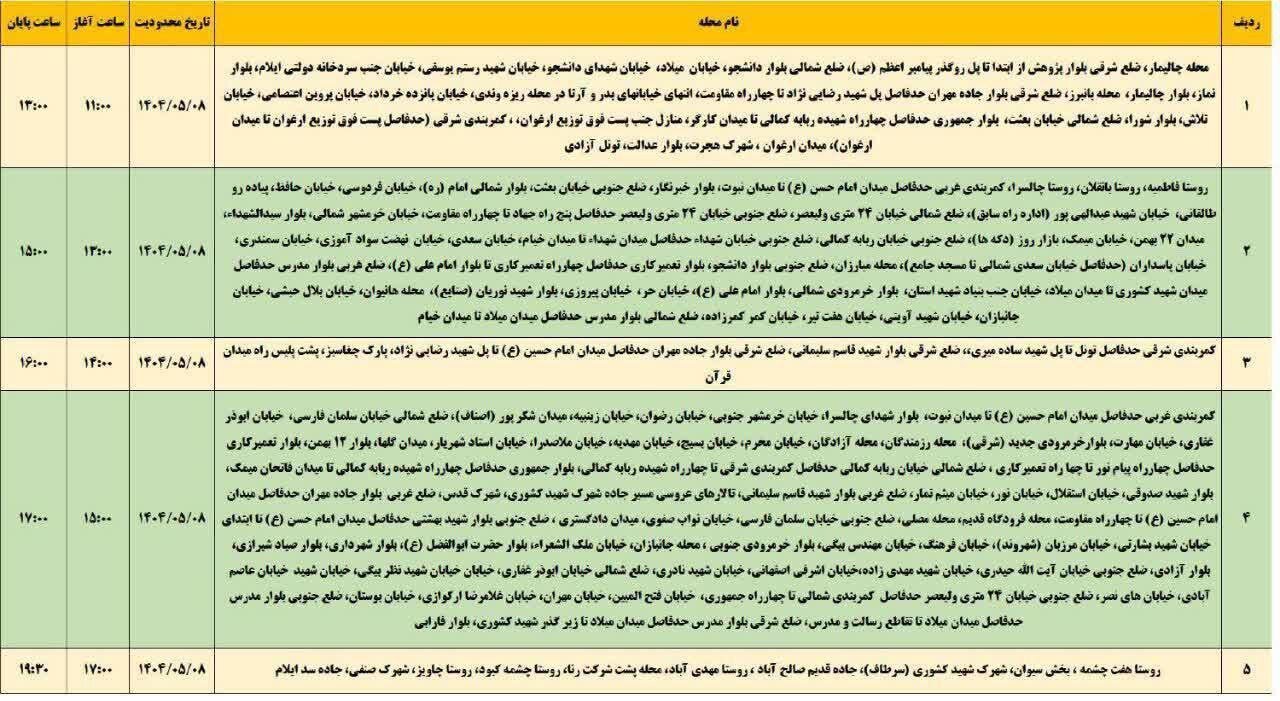 ردیف نام محله تاریخ محدودیت ساعت آغاز ساعت پایان
محله چالیمار، ضلع شرقی بلوار پژوهش از ابتدا تا پل روگذر پیامبر اعظم (ص)، ضلع شمالی بلوار دانشجو، خیابان میلاد، خیابان شهدای دانشجو، خیابان شهید رستم یوسفی، خیابان جنب سردخانه دولتی ایلام، بلوار
نماز، بلوار چالیمار، محله بانبرز، ضلع شرقی بلوار جاده مهران حدفاصل پل شهید رضایی نژاد تا چهارراه مقاومت، انتهای خیابانهای بدر و آرتا در محله ریزه وندی، خیابان پانزده خرداد، خیابان پروین اعتصامی، خیابان
۱ ۱۴۰۴/۰۵/۰۸ ۱۱:۰۰ ۱۳:۰۰
تلاش، بلوار شورا، ضلع شمالی خیابان بعثت، بلوار جمهوری حدفاصل چهارراه شهیده ربابه کمالی تا میدان کارگر، منازل جنب پست فوق توزیع ارغوان، ، کمربندی شرقی (حدفاصل پست فوق توزیع ارغوان تا میدان
ارغوان)، میدان ارغوان ، شهرک هجرت، بلوار عدالت، تونل آزادی
روستا فاطمیه، روستا بانقلان، روستا چالسرا، کمربندی غربی حدفاصل میدان امام حسن (ع) تا میدان نبوت، بلوار خبرنگار، ضلع جنوبی خیابان بعثت، بلوار شمالی امام (ره)، خیابان فردوسی، خیابان حافظ، پیاده رو
طالقانی، خیابان شهید عبدالهی پور (اداره راه سابق)، ضلع شمالی خیابان ۲۴ متری ولیعصر، ضلع جنوبی خیابان ۲۴ متری ولیعصر حدفاصل پنج راه جهاد تا چهارراه مقاومت، خیابان خرمشهر شمالی، بلوار سیدالشهداء،
میدان ۲۲ بهمن، خیابان میمک، بازار روز (دکه ها)، ضلع جنوبی خیابان ربابه کمالی، ضلع جنوبی خیابان شهداء حدفاصل میدان شهداء تا میدان خیام، خیابان سعدی، خیابان نهضت سواد آموزی، خیابان سمندری،
۲ ۱۴۰۴/۰۵/۰۸ ۱۳:۰۰ ۱۵:۰۰
خیابان پاسداران (حدفاصل خیابان سعدی شمالی تا مسجد جامع)، محله مبارزان، ضلع جنوبی بلوار دانشجو، بلوار تعمیرکاری حدفاصل چهارراه تعمیرکاری تا بلوار امام علی (ع)، ضلع غربی بلوار مدرس حدفاصل
میدان شهید کشوری تا میدان میلاد، خیابان جنب بنیاد شهید استان، بلوار خرمرودی شمالی، بلوار امام علی (ع)، خیابان حر، خیابان پیروزی، بلوار شهید نوریان (صنایع)، محله هانیوان، خیابان بلال حبشی، خیابان
جانبازان، خیابان شهید آوینی، خیابان هفت تیر، خیابان کمر کمرزاده، ضلع شمالی بلوار مدرس حدفاصل میدان میلاد تا میدان خیام
کمربندی شرقی حدفاصل تونل تا پل شهید ساده میری،، ضلع شرقی بلوار شهید قاسم سلیمانی، ضلع شرقی بلوار جاده مهران حدفاصل میدان امام حسین (ع) تا پل شهید رضایی نژاد، پارک چغاسبز، پشت پلیس راه میدان
۳ ۱۴۰۴/۰۵/۰۸ ۱۴:۰۰ ۱۶:۰۰
قرآن
کمربندی غربی حدفاصل میدان امام حسین (ع) تا میدان نبوت، بلوار شهدای چالسرا، خیابان خرمشهر جنوبی، خیابان رضوان، خیابان زینبیه، میدان شکر پور (اصناف)، ضلع شمالی خیابان سلمان فارسی، خیابان ابوذر
غفاری، خیابان مهارت، بلوارخرمرودی جدید (شرقی)، محله رزمندگان، محله آزادگان، خیابان محرم، خیابان بسیج، خیابان مهدیه، خیابان ملاصدرا، خیابان استاد شهریار، میدان گلها، بلوار ۱۲ بهمن، بلوار تعمیرکاری
حدفاصل چهارراه پیام نور تا چها راه تعمیرکاری ، ضلع شمالی خیابان ربابه کمالی حدفاصل کمربندی شرقی تا چهارراه شهیده ربابه کمالی، بلوار جمهوری حدفاصل چهارراه شهیده ربابه کمالی تا میدان فاتحان میمک،
بلوار شهید صدوقی، خیابان استقلال، خیابان نور، خیابان میثم تمار، ضلع غربی بلوار شهید قاسم سلیمانی، تالارهای عروسی مسیر جاده شهرک شهید کشوری، شهرک قدس، ضلع غربی بلوار جاده مهران حدفاصل میدان
۴ ۱۴۰۴/۰۵/۰۸ ۱۵:۰۰ ۱۷:۰۰
امام حسین (ع) تا چهارراه مقاومت، محله فرودگاه قدیم، محله مصلی، ضلع جنوبی خیابان سلمان فارسی، خیابان نواب صفوی، میدان دادگستری ، ضلع جنوبی بلوار شهید بهشتی حدفاصل میدان امام حسن (ع) تا ابتدای
خیابان شهید بشارتی، خیابان مرزبان (شهروند)، خیابان فرهنگ، خیابان مهندس بیگی، بلوار خرمرودی جنوبی ، محله جانبازان، خیابان ملک الشعراء، بلوار حضرت ابوالفضل (ع)، بلوار شهرداری، بلوار صیاد شیرازی،
بلوار آزادی، ضلع جنوبی خیابان آیت الله حیدری، خیابان شهید مهدی زاده،خیابان اشرفی اصفهانی، خیابان شهید نادری، ضلع شمالی خیابان ابوذر غفاری، خیابان خیابان شهید نظر بیگی، خیابان شهید خیابان عاصم
آبادی، خیابان های نصر، ضلع جنوبی خیابان ۲۴ متری ولیعصر حدفاصل کمربندی شمالی تا چهارراه جمهوری، خیابان فتح المبین، خیابان مهران، خیابان غلامرضا ارکوازی، خیابان بوستان، ضلع جنوبی بلوار مدرس
حدفاصل میدان میلاد تا تقاطع رسالت و مدرس، ضلع شرقی بلوار مدرس حدفاصل میدان میلاد تا زیر گذر شهید کشوری، بلوار فارابی
۵ روستا هفت چشمه ، بخش سیوان، شهرک شهید کشوری (سرطاف)، جاده قدیم صالح آباد ، روستا مهدی آباد، محله پشت شرکت رنا، روستا چشمه کبود، روستا چاویز، شهرک صنفی، جاده سد ایلام ۱۴۰۴/۰۵/۰۸ ۱۷:۰۰ ۱۹:۳۰